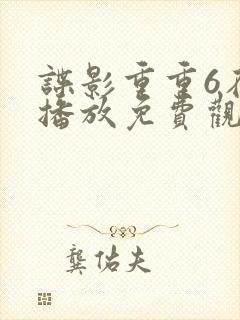 諜影重重6在
播放免費觀
龔佑夫